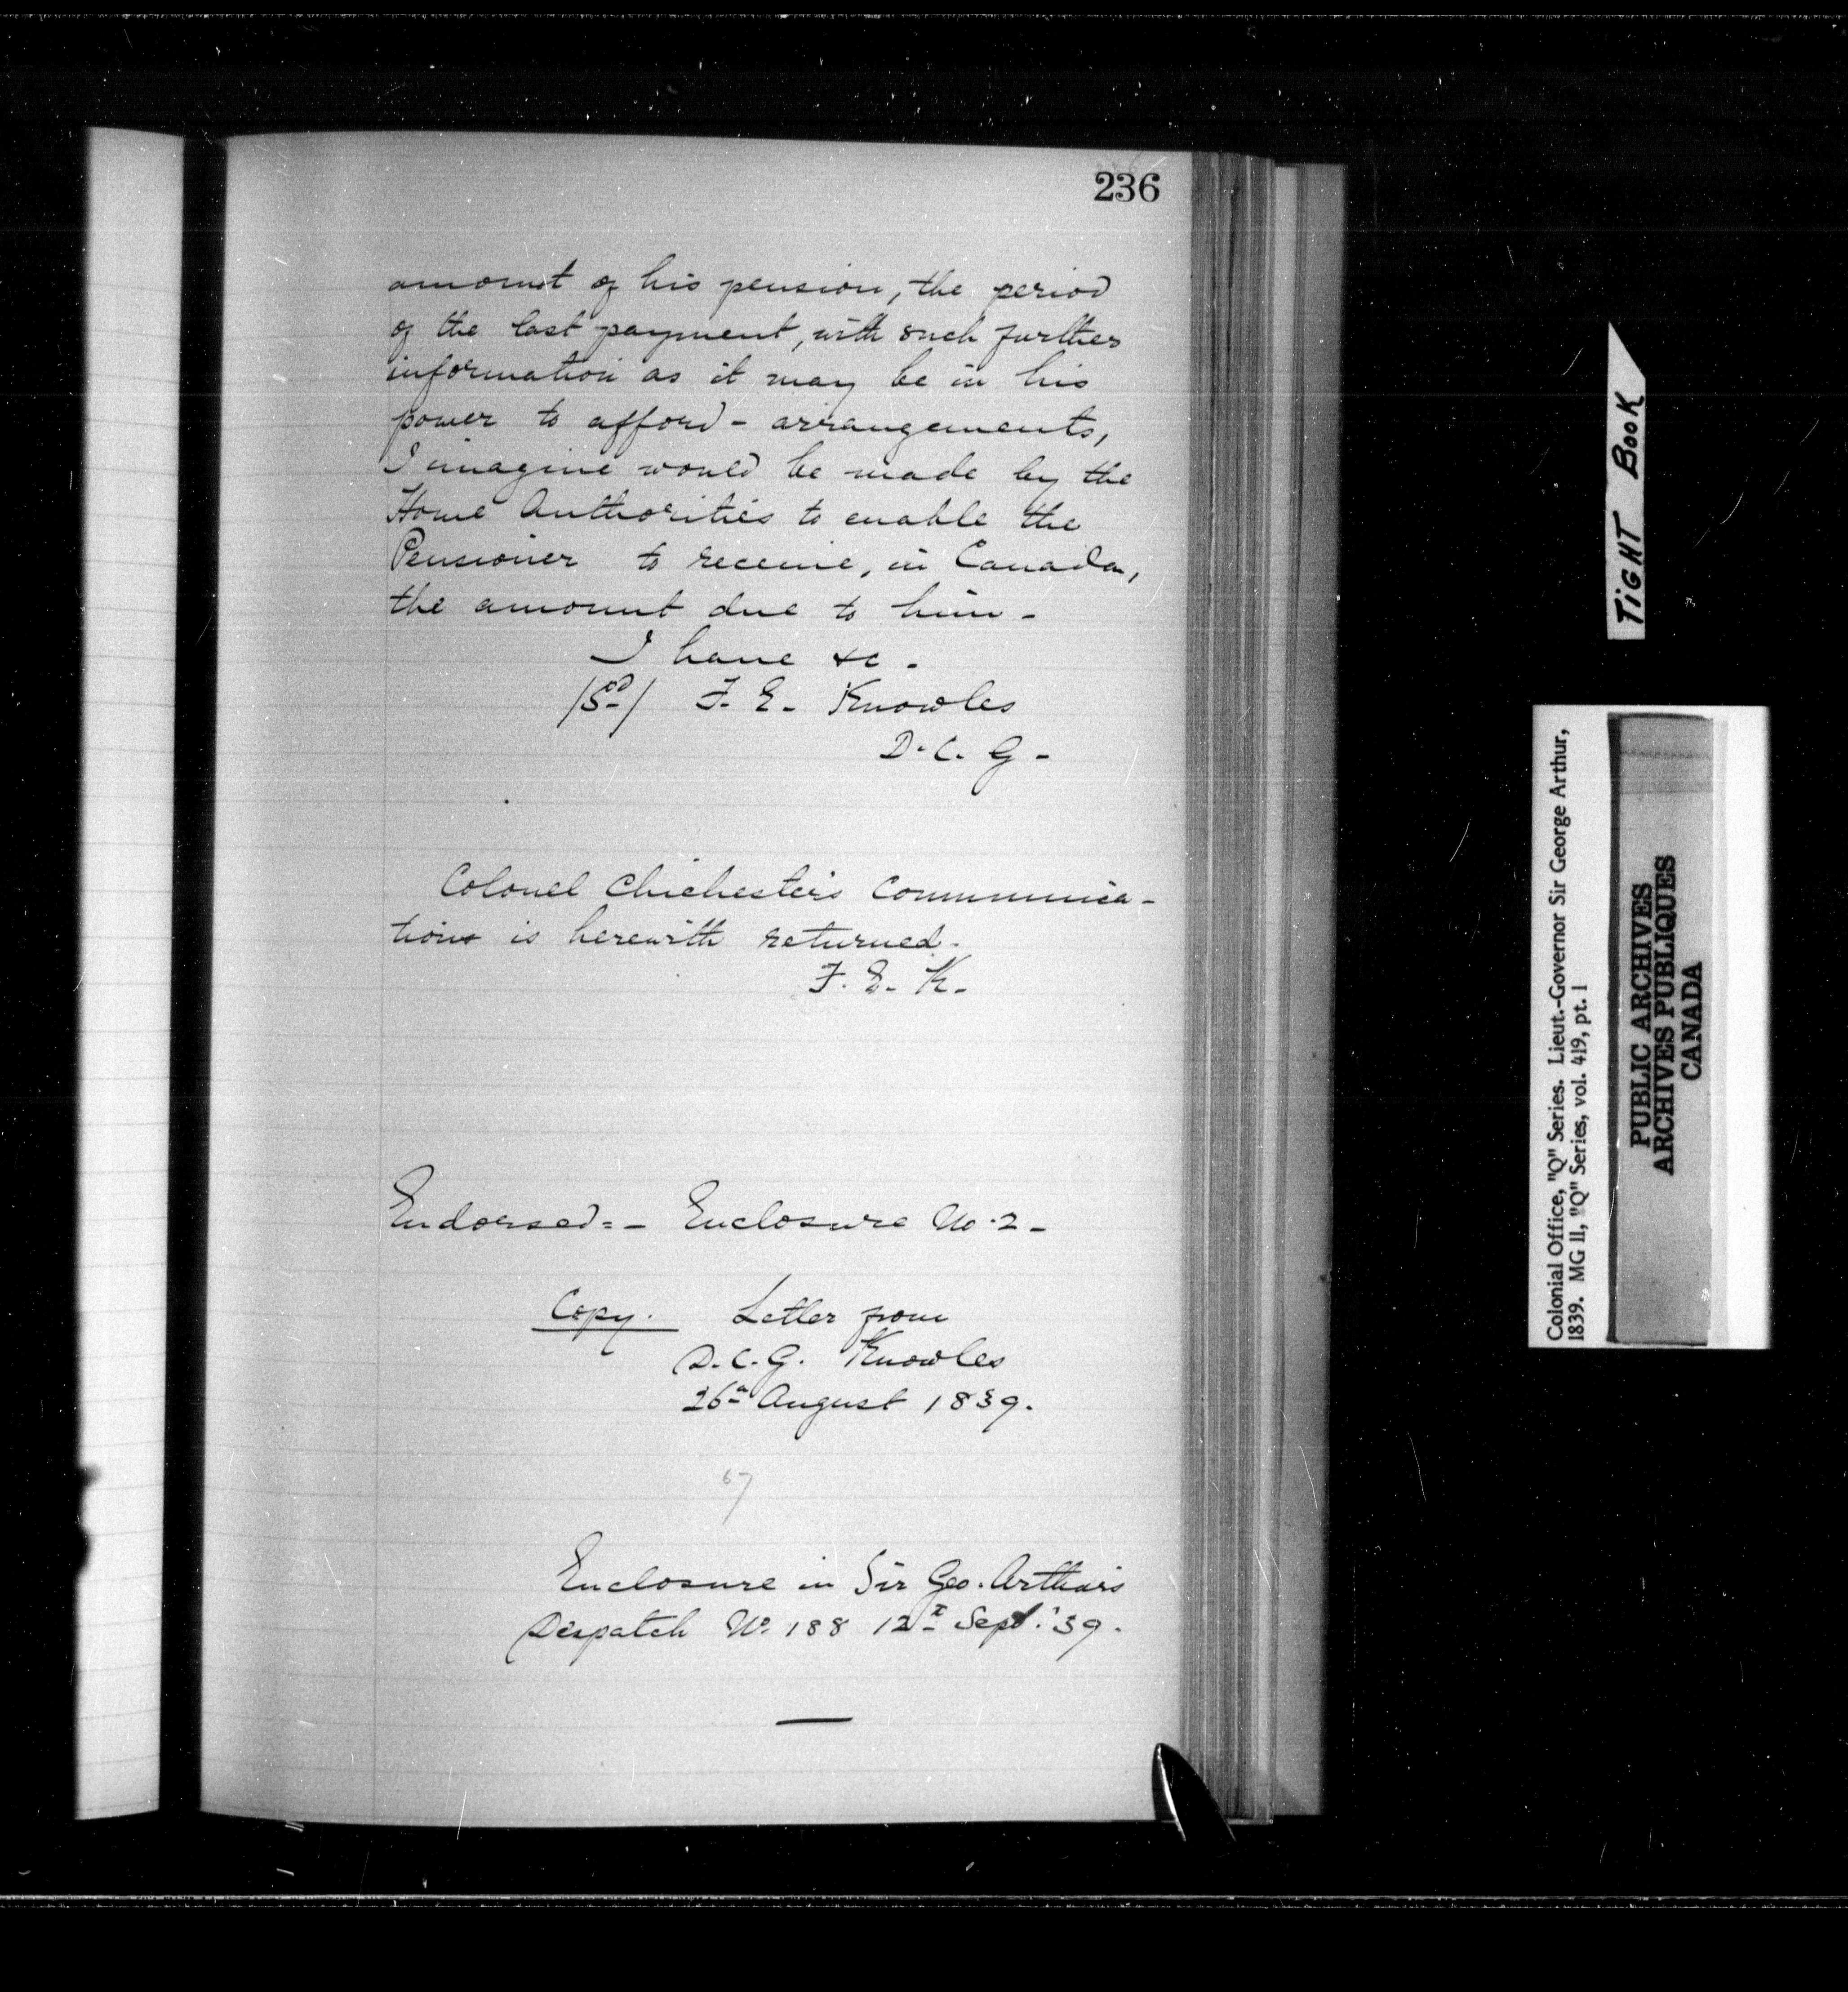 236
amount of his pension, the period
of the last payment, with such further
information as it may be in his
power to afford - arrangements,
I imagine would be made by the
Home Authorities to enable the
Pensioner to receive, in Canada,
the amount due to him -
I have &c -
/Sd/ F. E. Knowles
D. C. G -
Colonel Chichester's Communica-
tions is herewith returned -
F. E. K.
Endorsed: - Enclosure No. 2 -
Copy. Letter from
D. C. G. Knowles
26th August 1839.
67
Enclosure in Sir Geo. Arthur's
Despatch No. 188 12th Sept. '39.
TIGHT BOOK
Colonial Office, "Q" Series. Lieut.-Governor Sir George Arthur,
1839. MG 11, "Q" Series, vol. 419, pt. 1
PUBLIC ARCHIVES
ARCHIVES PUBLIQUES
CANADA